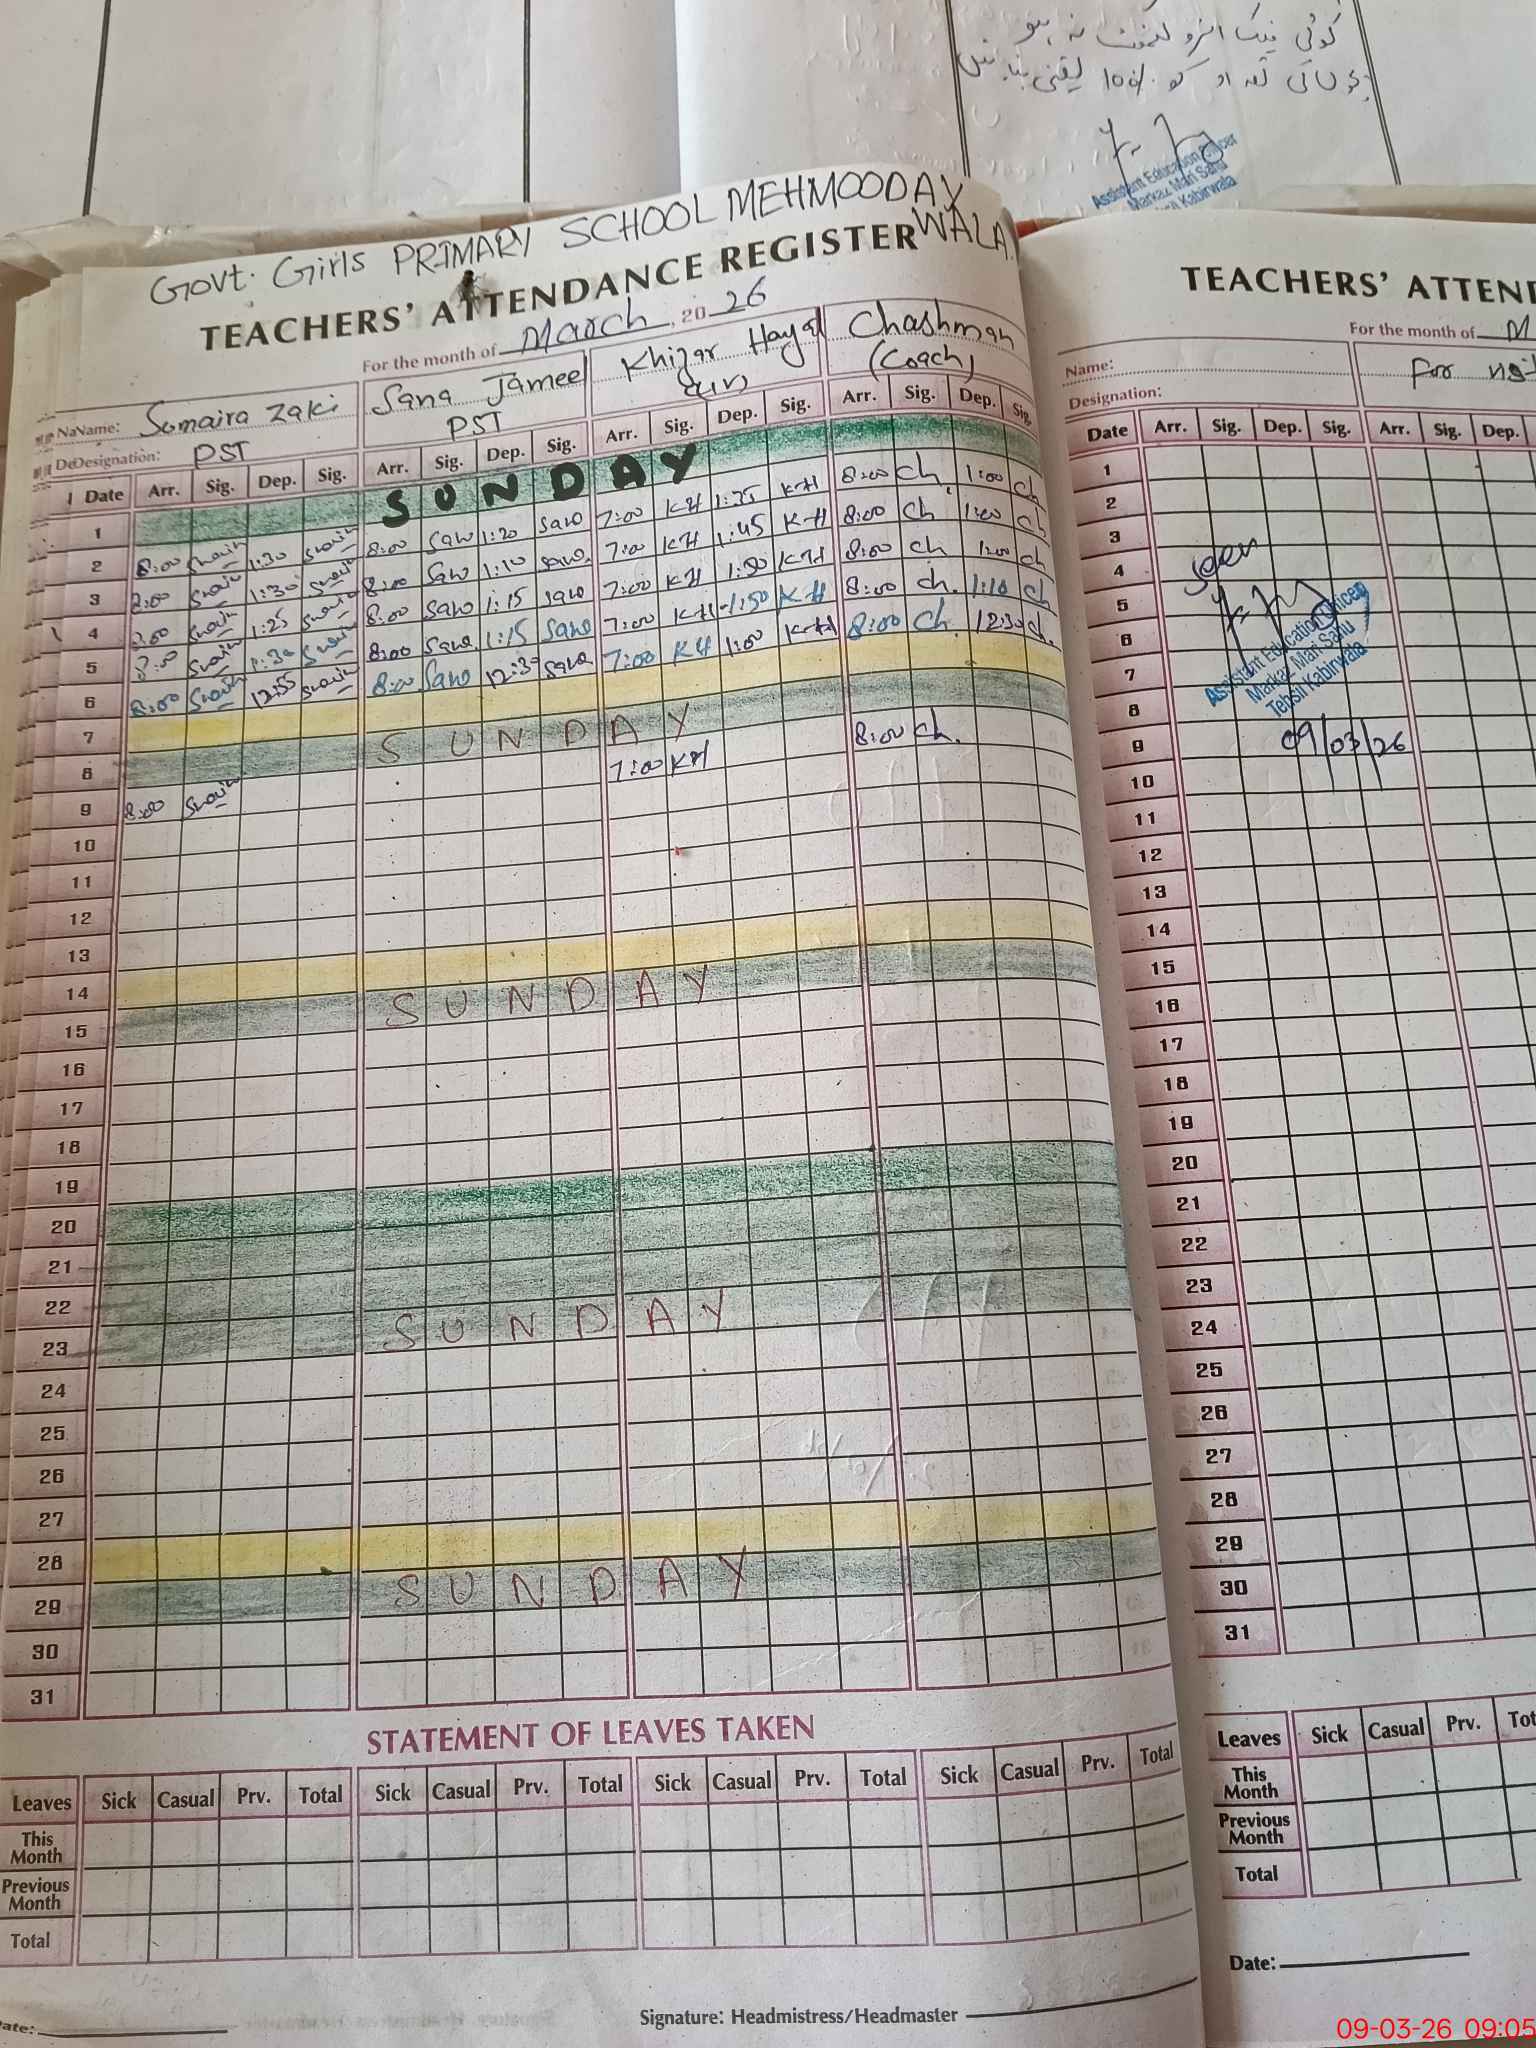 کوئی
کو 100% یقینی بنائیں
Assistant Education Officer
Markaz Mari Sahu
Kabirwala
GOVT. Girls PRIMARY SCHOOL MEHMOODAY WALA.
TEACHERS' ATTENDANCE REGISTER
For the month of March, 2026
Name: Sumaira Zaki Sana Jameel Khizar Hayat Chashman
Designation: PST PST (Coach)
Date Arr. Sig. Dep. Sig. Arr. Sig. Dep. Sig. Arr. Sig. Dep. Sig. Arr. Sig. Dep. Sig.
1 SUNDAY
2 8:00 1:30 8:00 1:20 7:00 KH 1:25 KH 8:00 ch. 1:00 ch
3 8:00 1:30 8:00 1:10 7:00 KH 1:45 KH 8:00 ch 1:00 ch
4 8:00 1:25 8:00 1:15 7:00 KH KH 8:00 ch 1:00 ch
5 8:00 1:30 8:00 1:15 7:00 KH 1:50 KH 8:00 ch. 1:10 ch
6 8:00 12:55 8:00 12:30 7:00 KH 1:00 KH 8:00 ch. 12:30 ch.
7
8 SUNDAY
9 8:00 7:00 KH 8:00 ch.
10
11
12
13
14
15 SUNDAY
16
17
18
19
20
21
22
23 SUNDAY
24
25
26
27
28
29 SUNDAY
30
31
STATEMENT OF LEAVES TAKEN
Leaves Sick Casual Prv. Total Sick Casual Prv. Total Sick Casual Prv. Total Sick Casual Prv. Total
This Month
Previous Month
Total
Signature: Headmistress/Headmaster
TEACHERS' ATTEN
For the month of M
Name: For
Designation:
Date Arr. Sig. Dep. Sig. Arr. Sig. Dep.
1
2
3
4
5
6
7
8
9
10
11
12
13
14
15
16
17
18
19
20
21
22
23
24
25
26
27
28
29
30
31
Seen
Assistant Education Officer
Markaz Mari Sahu
Tehsil Kabirwala
09/03/26
Leaves Sick Casual Prv.
This Month
Previous Month
Total
Date:
09-03-26 09:05